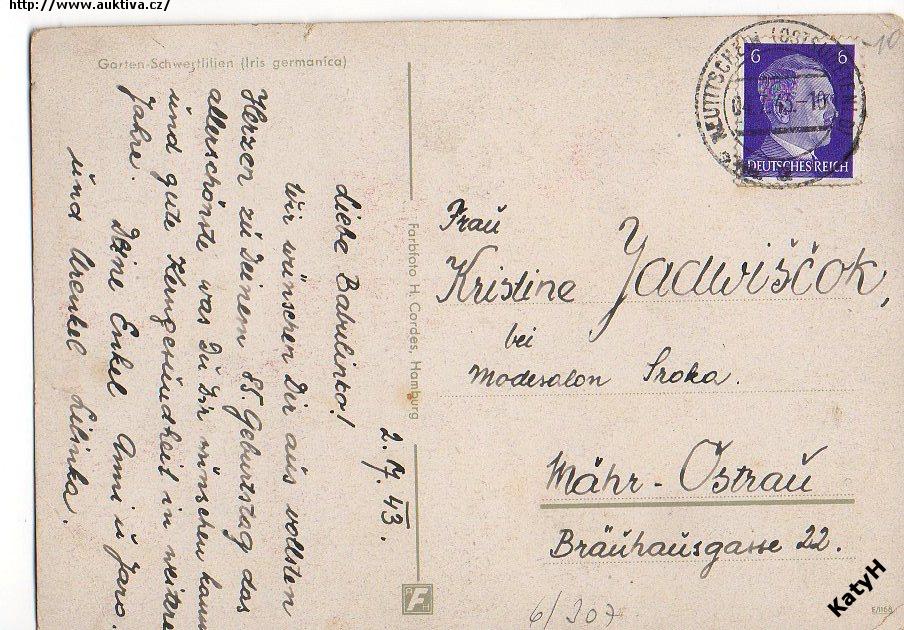 http://www.auktiva.cz/
Garten-Schwestlilien (Iris germanica)
2.IV.43.
Liebe Babilinko!
Wir wünschen Dir aus vollsten
Herzen zu Deinem 85. Geburtstag das
allerschönste, was Du Dir wünschen kann
und gute Gesundheit in weitere
Jahre. Deine Enkel Anni u Jaro.
und Urenkel Lilinka.
Farbfoto H. Cordes, Hamburg
6 6
DEUTSCHES REICH
NEUTITSCHEIN
-10
Frau
Kristine Jadwiščok,
bei
Modesalon Sroka.
Mähr-Ostrau
Bräuhausgasse 22.
6/207
F
E/1168
KatyH